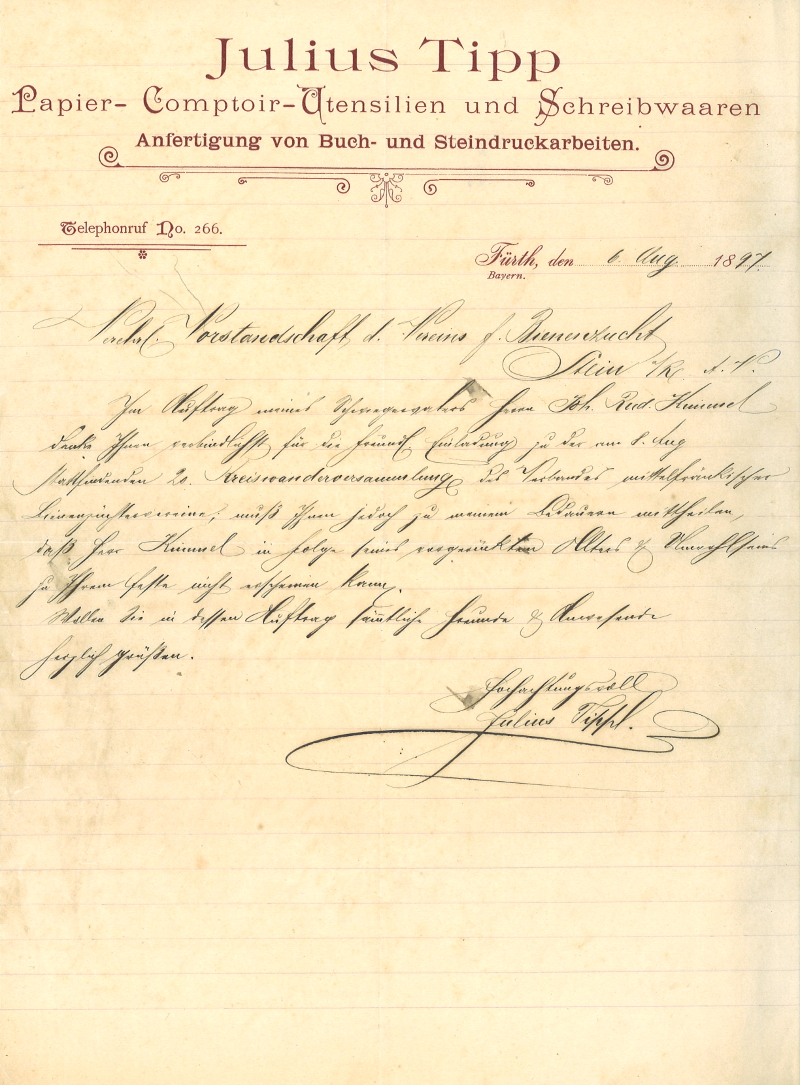 Julius Tipp
Papier- Comptoir-Utensilien und Schreibwaaren
Anfertigung von Buch- und Steindruckarbeiten.
Telephonruf No. 266.
Fürth, den 6 Aug. 1897.
Bayern.
Verehrl. Vorstandschaft d. Vereins f. Bienenzucht
Stein
Im Auftrag meines Schwiegervaters Herrn Joh. Rud. Kimmel
danke Ihnen verbindlichst für die freundl. Einladung zu der am 8. Aug
stattfindenden 20. Kreiswanderversammlung des Verbandes mittelfränkischer
Bienenzüchtervereine, muß Ihnen jedoch zu meinem Bedauern mittheilen,
daß Herr Kimmel in Folge seines vorgerückten Alters & Unwohlseins
zu Ihrem Feste nicht erscheinen kann.
Wollen Sie in dessen Auftrag sämtliche Freunde & Anwesende
herzlich grüßen.
Hochachtungsvoll
Julius Tipp.